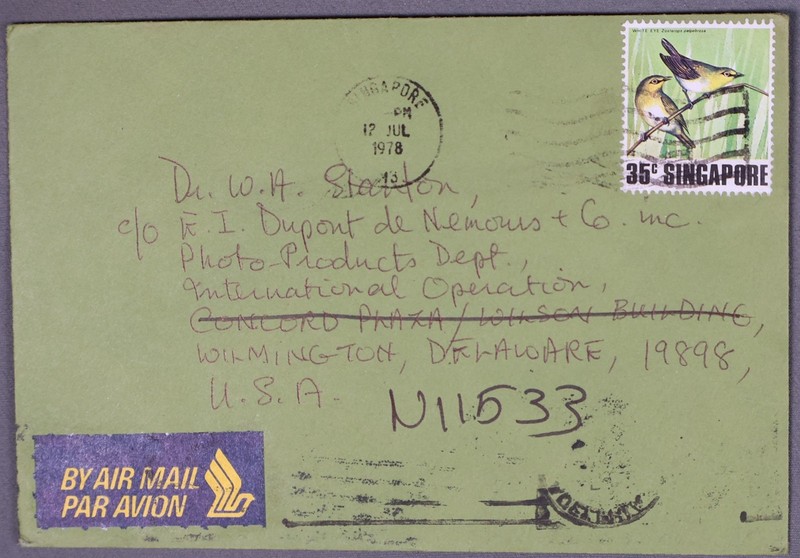 WHITE-EYE Zosterops palpebrosa
35c SINGAPORE
SINGAPORE
PM
12 JUL
1978
13
Dr. W.A. Stanton,
c/o E. I. Dupont de Nemours + Co. inc.
Photo-Products Dept.,
International Operation,
CONCORD PLAZA / WILSON BUILDING,
WILMINGTON, DELAWARE, 19898,
U.S.A.
N11533
BY AIR MAIL
PAR AVION